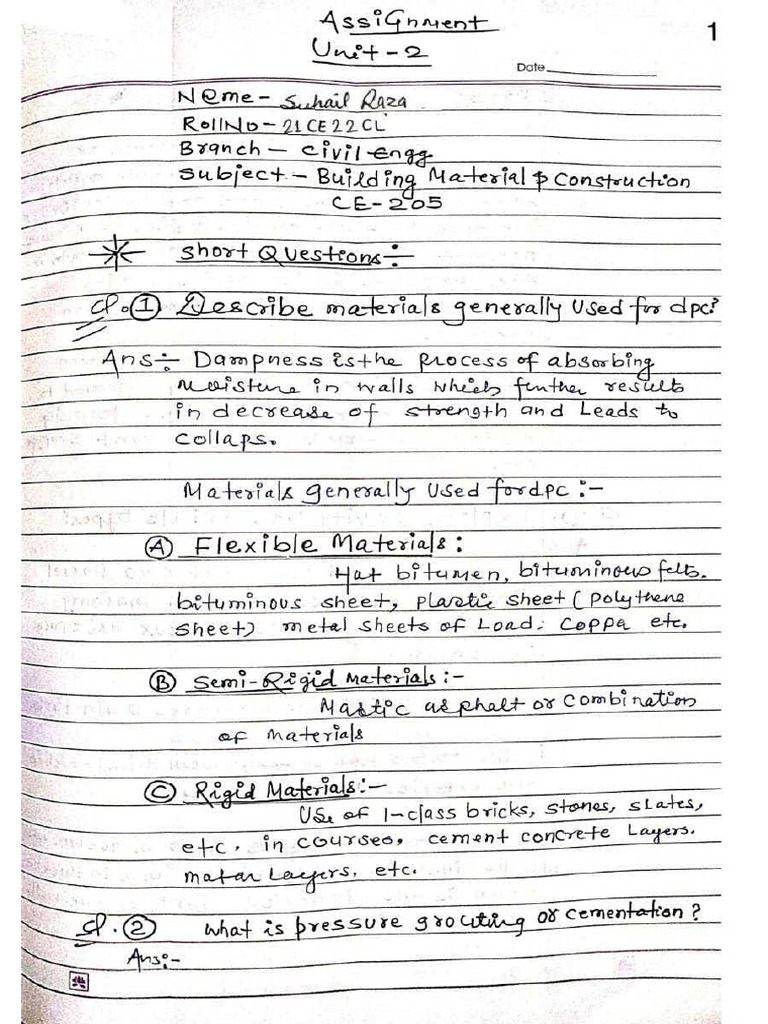 Assignment
1
Unit-2
Date
Name- Suhail Raza
Roll No- 21CE22CL
Branch - Civil Engg
Subject - Building Material & Construction
CE-205
Short Questions:-
Q.① Describe materials generally used for dpc?
Ans:- Dampness is the process of absorbing
moisture in walls which further results
in decrease of strength and Leads to
Collaps.
Materials generally used for dpc :-
Ⓐ Flexible Materials:
Hat bitumen, bituminous felts.
bituminous sheet, plastic sheet (polythene
sheet) metal sheets of Load. Coppa etc.
Ⓑ Semi-Rigid Materials:-
Mastic asphalt or combination
of materials
Ⓒ Rigid Materials:-
Use of 1-class bricks, stones, slates,
etc. in courses, cement concrete Layers.
matar Layers, etc.
Q.② What is pressure grouting or cementation?
Ans:-